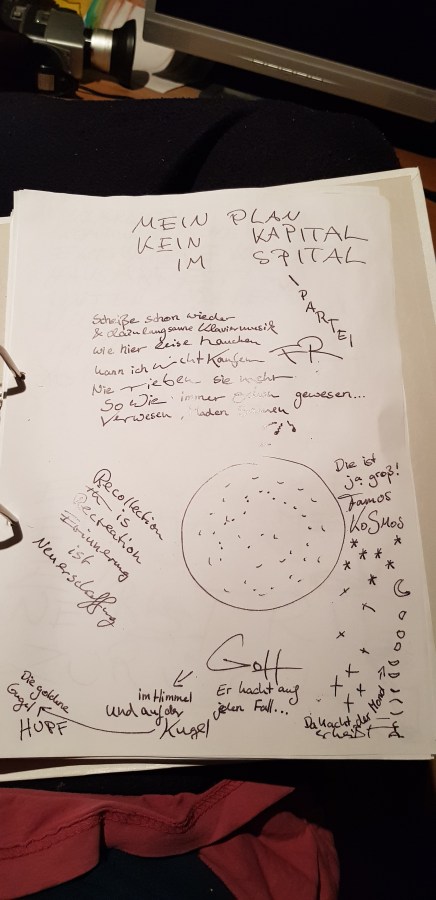 MEIN PLAN
KEIN KAPITAL
IM SPITAL
PARTEI
Scheiße schon wieder
& dazu langsame Klaviermusik
wie hier leise
kann ich nicht kaufen
Nie rieben sie mehr
So wie immer schon gewesen...
Verwesen, Maden
Die ist
ja groß!
Famos
KOSMOS
Recollection
is
Recreation
Erinnerung
ist
Neuerschaffung
Gott
Er lacht auf
jeden Fall...
im Himmel
und auf der
Kugel
Die goldene
Gugel
HUPF
Da lacht der Mond
er heißt